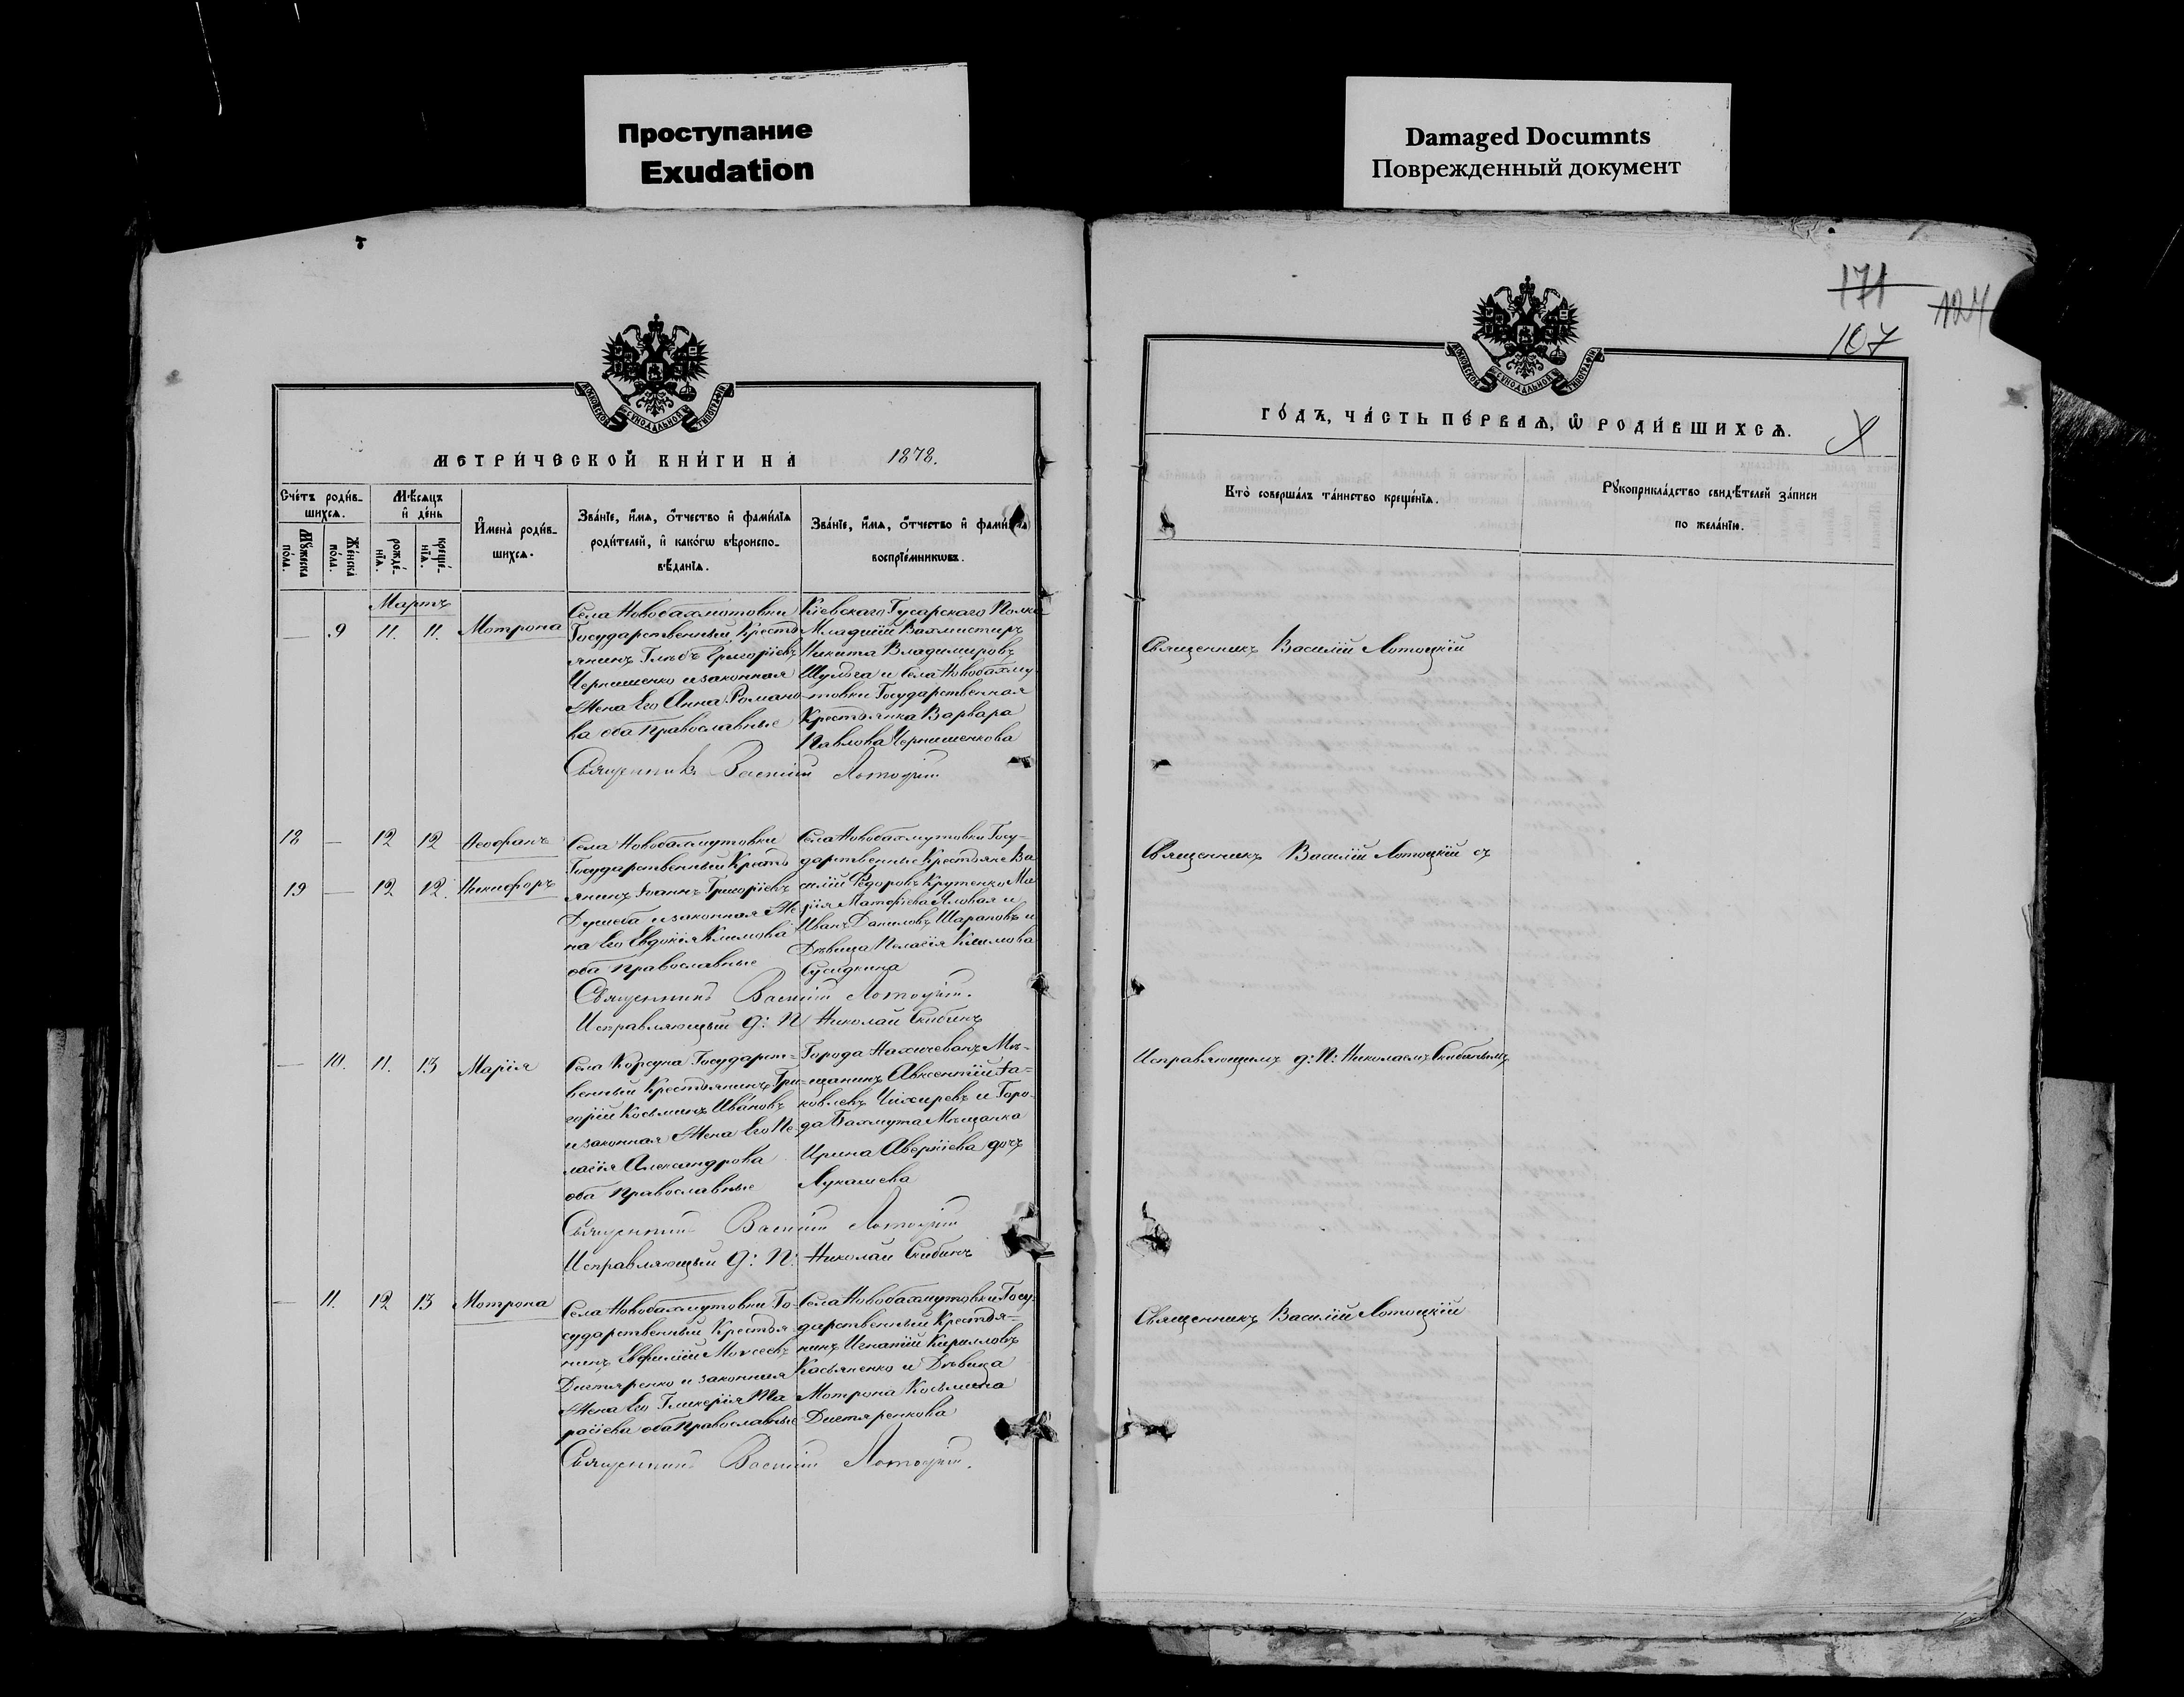 Проступание
Exudation
Damaged Documnts
Поврежденный документ
171
124
107
МОСКОВСКОЙ СѴНОДАЛЬНОЙ ТИПОГРАФІИ
МЕТРИ́ЧЕСКОЙ КНИ́ГИ НА 1878.
Сче́тъ роди́в-
шихсѧ.
Мꙋ́жеска
по́ла.
Же́нска
по́ла.
Мѣ́сѧцъ
и҆ де́нь
рожде́-
нїѧ.
креще́-
нїѧ.
И҆мена̀ роди́в-
шихсѧ.
Зва́нїе, и҆́мѧ, ѻ҆́тчество и҆ фами́лїѧ
роди́телей, и҆ како́гѡ вѣроиспо-
вѣ́данїѧ.
Зва́нїе, и҆́мѧ, ѻ҆́тчество и҆ фами́лїѧ
воспрїе́мникѡвъ.
Мартъ
— 9 11. 11. Мотрона
Села Новобахмутовки
Государственный Крестья
янинъ Глѣбъ Григоріевъ
Чернишенко и законная
Жена Его Анна Романо-
ва оба Православные
Кіевскаго Гусарскаго Полка
Младшій Вахмистръ
Никита Владиміровъ
Шульга и Села Новобахму-
товки Государственная
Крестьянка Варвара
Павлова Чернишенкова
Священникъ Василій Лотоцкій
18 — 12 12 Ѳеофанъ
19 — 12 12. Никифоръ
Села Новобахмутовки
Государственный Кресть
янинъ Іоаннъ Григоріевъ
и законная Же
на Его Евдокія Климова
оба Православные
Села Новобахмутовки Госу-
дарственные Крестьяне Ва
силій Ѳедоровъ Крутенко Ма
рія Матѳіева Яловая и
Иванъ Даниловъ Шараповъ и
Дѣвица Пелагія Климова
Сусидкина
Священникъ Василій Лотоцкій.
Исправляющый д: П Николай Скибинъ
— 10. 11. 13 Марія
Села Корсуна Государст-
венный Крестьянинъ Гри-
горій Косьминъ Ивановъ
и законная Жена Его Пе-
лагія Александрова
оба Православные
Города Нахичевань Мѣ-
щанинъ Авксентій Іа-
ковлевъ Чихиревъ и Горо-
да Бахмута Мѣщанка
Ирина Аверкіева дочь
Лукашева
Священникъ Василій Лотоцкій
Исправляющый д: П: Николай Скибинъ
— 11. 12 13 Мотрона
Села Новобахмутовки Го-
сударственный Крестья
нинъ Евфимій Моѵсеевъ
Дигтяренко и законная
Жена Его Гликерія Та
расіева оба Православные
Села Новобахмутовки Госу-
дарственный Крестья-
нинъ Игнатій Кирилловъ
Касьяненко и Дѣвица
Мотрона Косьмина
Дигтяренкова
Священникъ Василій Лотоцкій.
МОСКОВСКОЙ СѴНОДАЛЬНОЙ ТИПОГРАФІИ
ГО́ДЪ, ЧА́СТЬ ПЕ́РВАѦ, Ѡ҆ РОДИ́ВШИХСѦ.
Кто̀ соверша́лъ та́инство креще́нїѧ.
Рꙋкоприкла́дство свидѣ́телей за́писи
по жела́нїю.
Священникъ Василій Лотоцкій
Священникъ Василій Лотоцкій съ
Исправляющимъ д: П: Николаемъ Скибинымъ
Священникъ Василій Лотоцкій